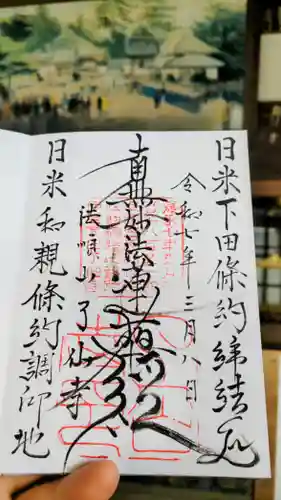 日米下田條約締結之処
令和七年三月八日
南無妙法蓮華経
法順山了仙寺
日米和親條約調印地